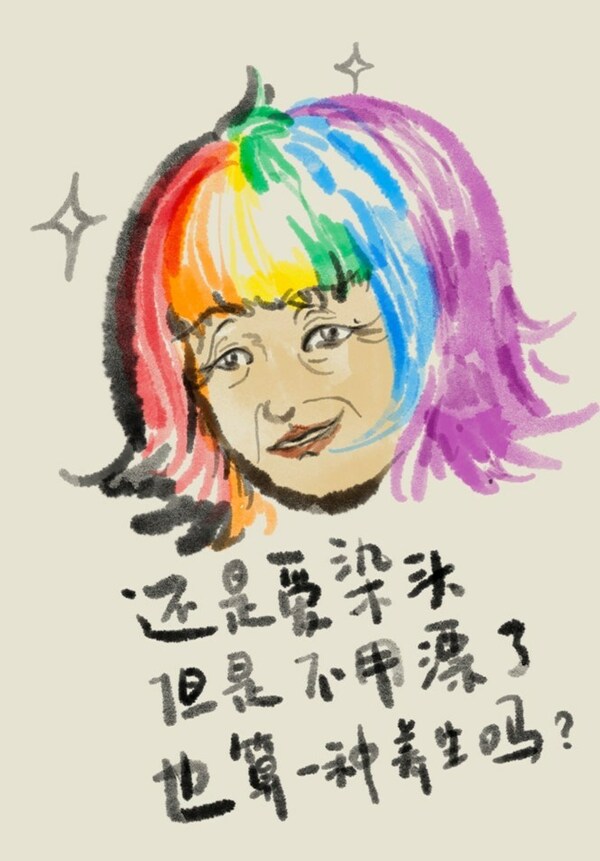 还是爱染头
但是不用漂了
也算一种养生吗?